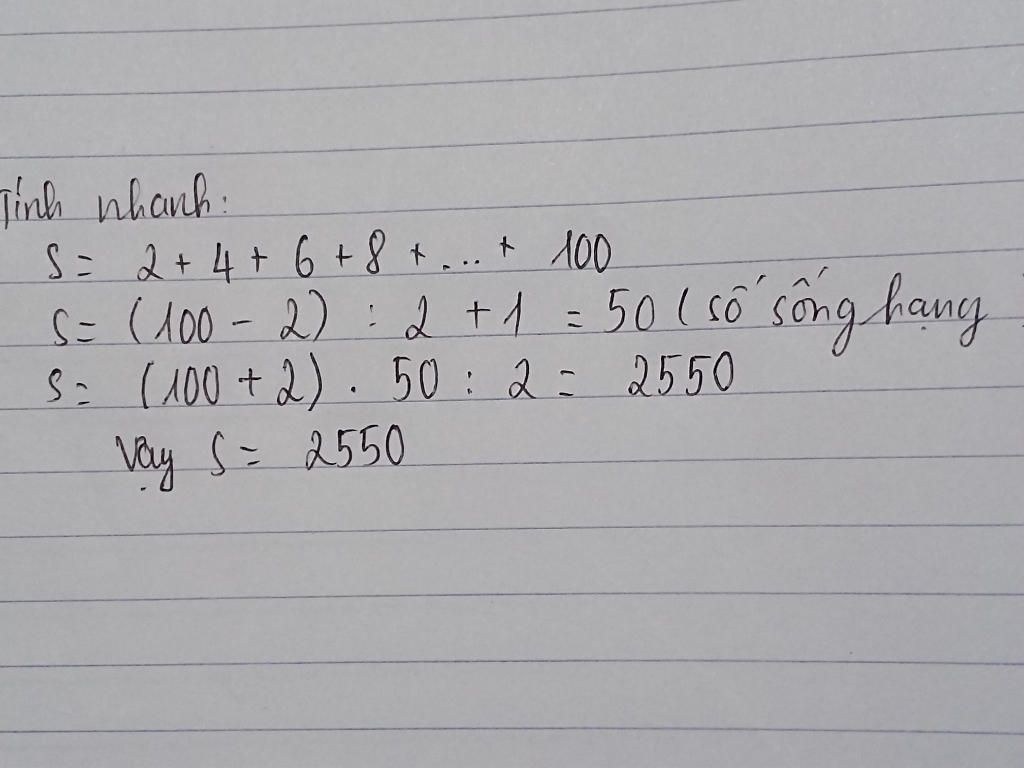 Tính nhanh:
S = 2 + 4 + 6 + 8 + ... + 100
S = (100 - 2) : 2 + 1 = 50 ( số sống hạng
S = (100 + 2) . 50 : 2 = 2550
Vạy S = 2550